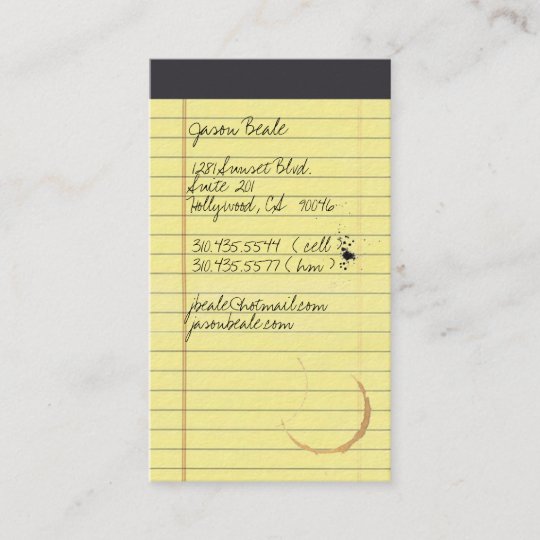 Jason Beale
1281 Sunset Blvd.
Suite 201
Hollywood, CA 90046
310.435.5544 (cell)
310.435.5577 (hm)
jbeale@hotmail.com
jasonbeale.com